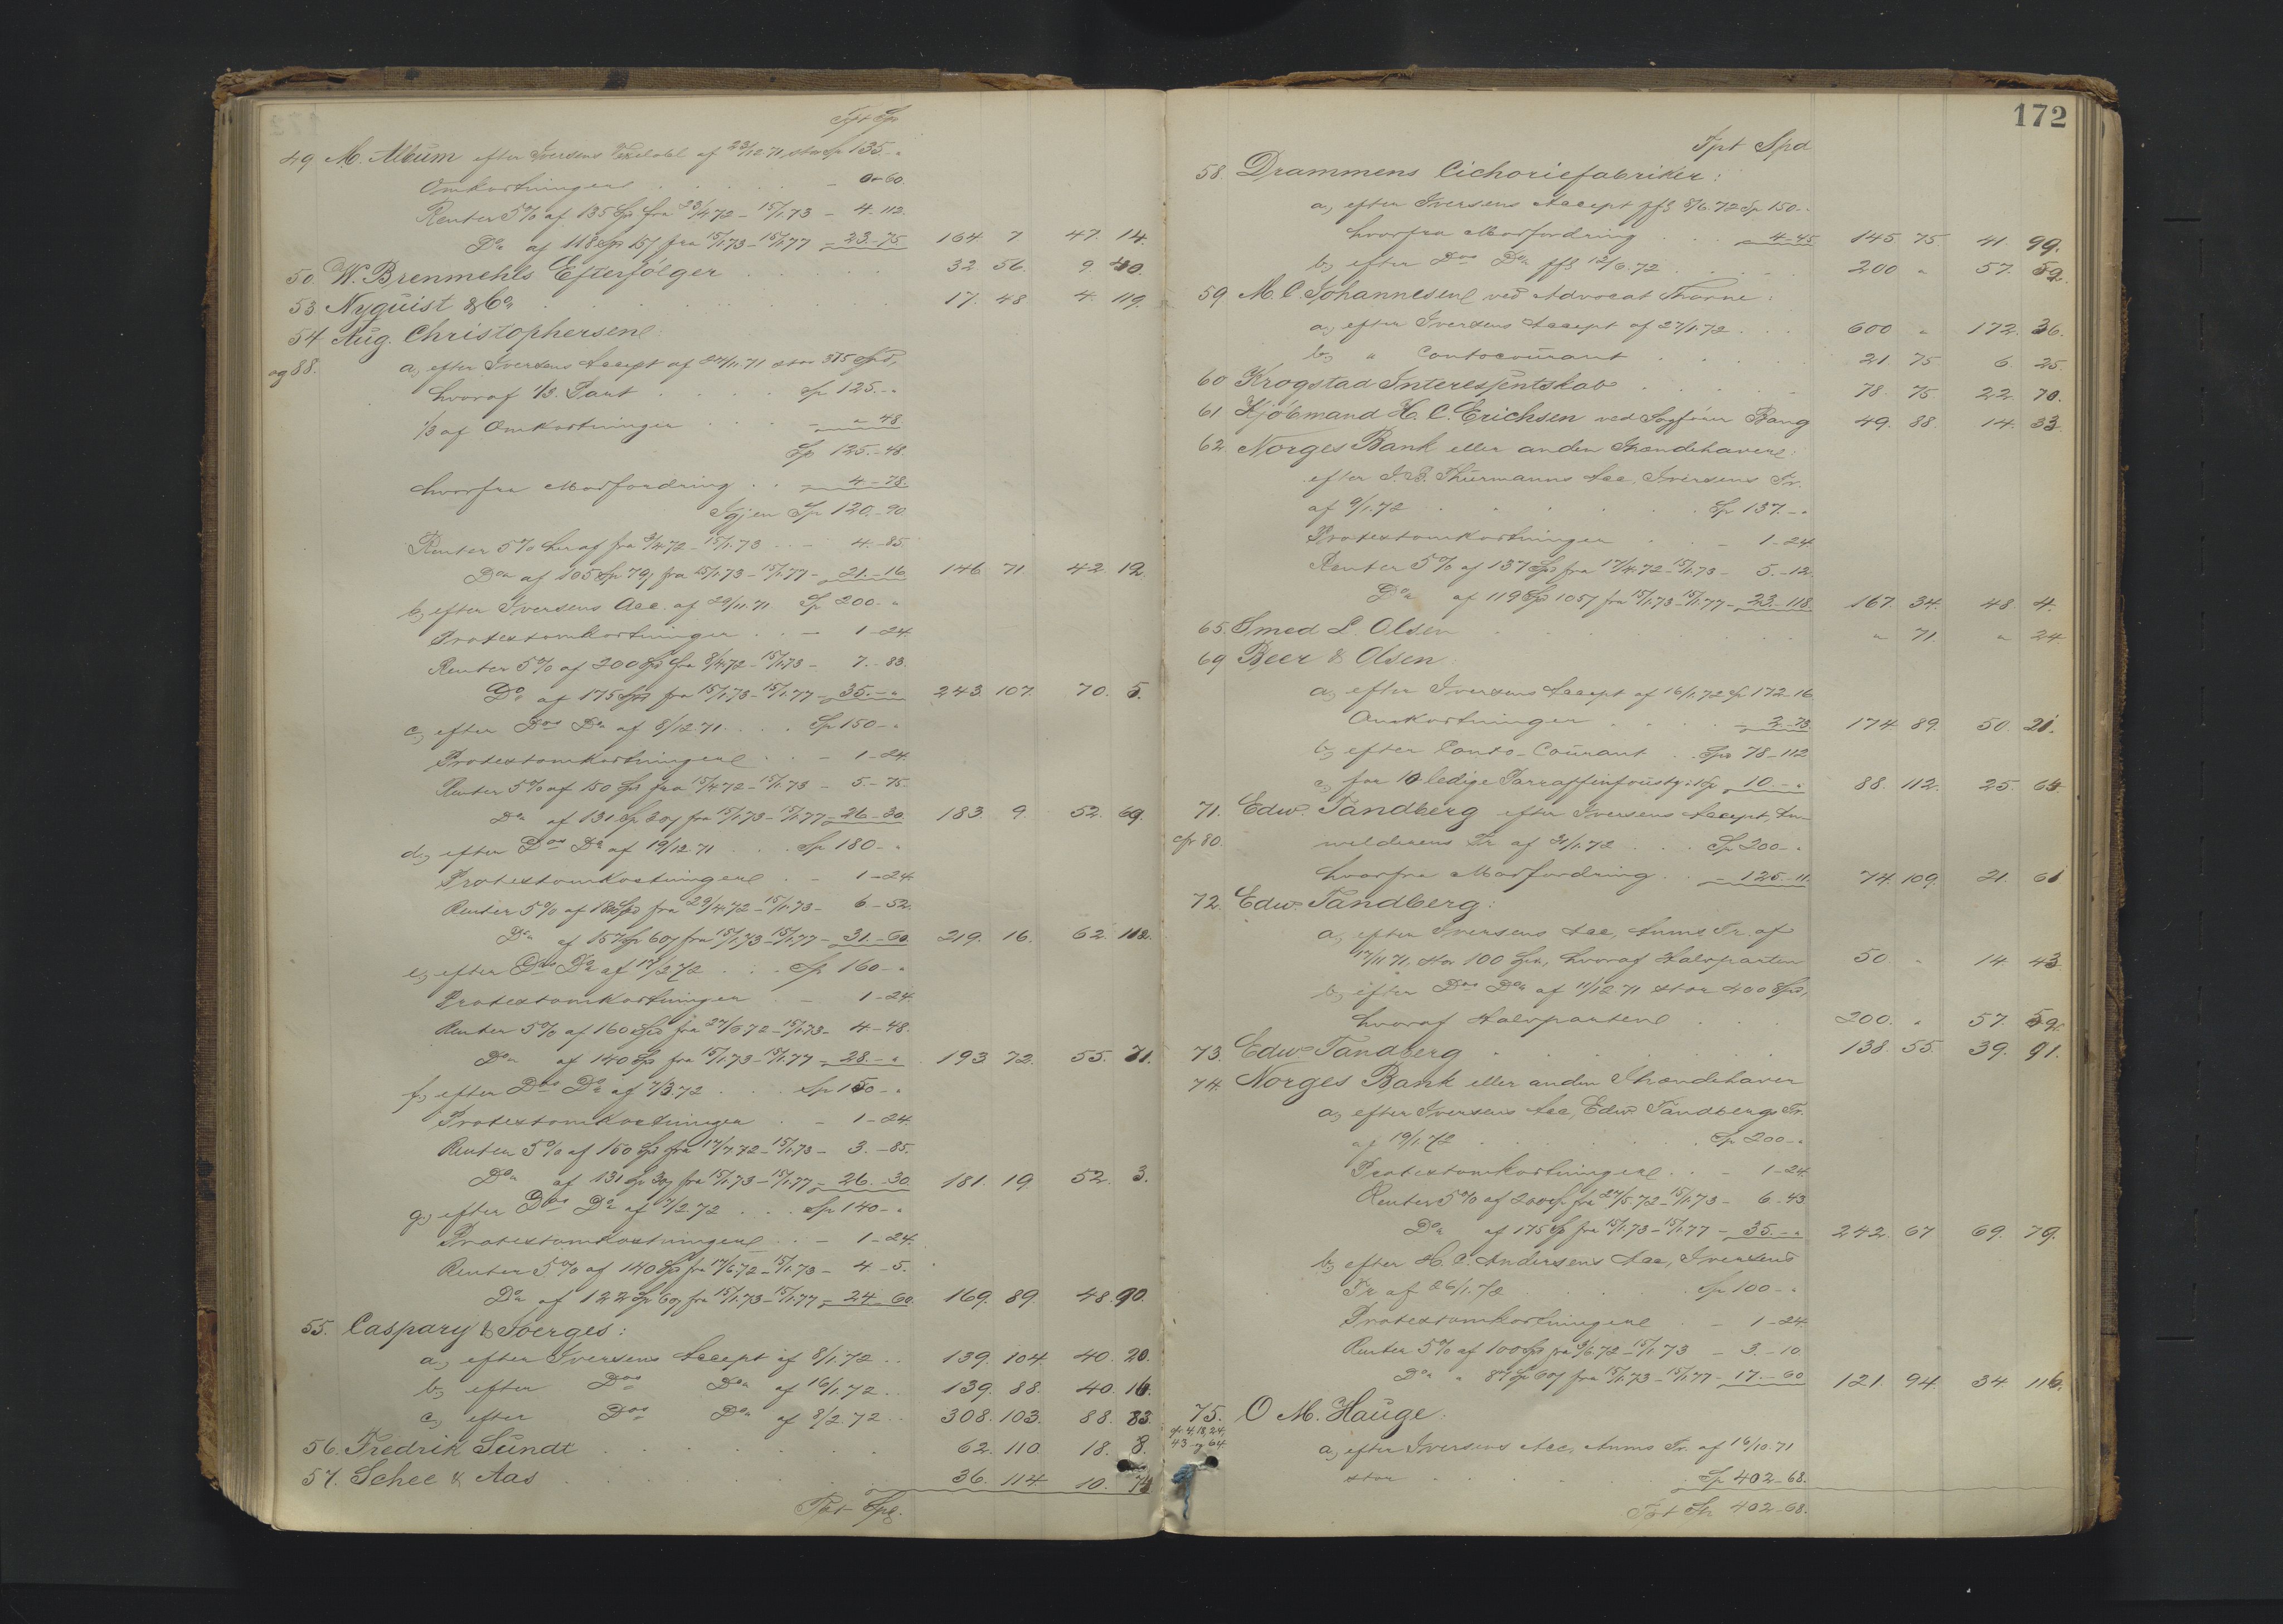 Tpt Sp
49 M. Album efter Iversens Vexelobl af 23/12 71, stor Sp 135 - "
Omkostninger . . . . . - 0 - 60.
Renter 5% af 135 Sp fra 23/4 72 - 15/1 73 - 4 - 112.
Do af 118 Sp 15 fra 15/1 73 - 15/1 77 - 23. - 75. 164. 7 47. 14.
50. W. Brenmehls Efterfølger . . . . 32 56. 9. 40.
53 Nyquist & Co . . . . 17. 48 4. 119.
54 Aug. Christophersen:
og 88. a, efter Iversens Accept af 24/11. 71 stor 375 Spd,
hvoraf 1/3 Part . . . . Sp 125. - "
1/3 af Omkostninger . . . - " - 48
Sp 125. - 48.
hvorfra Modfordring . . - 4 - 78.
Igjen Sp 120. - 90
Renter 5% heraf fra 3/4 72 - 15/1 73 . . - 4. - 85.
Do af 105 Sp 79 fra 15/1 73 - 15/1 77 - 21. - 16 146. 71. 42. 12.
b, efter Iversens Acc. af 29/11. 71 Sp 200. - "
Protestomkostninger . . - 1 - 24.
Renter 5% af 200 Spd fra 8/4 72 - 15/1 73 - 7. - 83.
Do af 175 Spd fra 15/1 73 - 15/1 77 - 35. - " 243. 107. 70. 5.
c, efter Dos Do af 8/12. 71 . . . . Sp 150 - "
Protestomkostninger . . - 1 - 24.
Renter 5% af 150 Spd fra 15/4 72 - 15/1 73 - 5. - 75.
Do af 131 Sp 30 fra 15/1 73 - 15/1 77 - 26 - 30. 183. 9. 52. 69.
d, efter Dos Do af 19/12. 71 . . . Sp 180 - "
Protestomkostninger . . - 1 - 24.
Renter 5% af 180 Spd fra 29/4 72 - 15/1 73 - 6 - 52.
Do af 157 Sp 60 fra 15/1 73 - 15/1 77 - 31. - 60. 219. 16. 62. 112.
e, efter Dos Do af 17/2 72 . . . Sp 160 - "
Protestomkostninger . - 1 - 24.
Renter 5% af 160 Spd fra 27/6 72 - 15/1 73 - 4 - 48.
Do af 140 Sp fra 15/1 73 - 15/1 77 - 28. - " 193. 72. 55. 71.
f, efter Dos Do af 7/3. 72 . . . Sp 150 - "
Protestomkostninger . - 1 - 24.
Renter 5% af 150 Sp fra 17/7 72 - 15/1 73 - 3. - 85.
Do af 131 Sp 30 fra 15/1 73 - 15/1 77 - 26. - 30. 181. 19 52. 3.
g, efter Dos Do af 7/2 72 . . . Sp 140 - "
Protestomkostninger . . - 1 - 24.
Renter 5% af 140 Sp fra 17/6. 72 - 15/1 73 - 4 - 5.
Do af 122 Sp 60 fra 15/1 73 - 15/1 77 - 24 - 60. 169. 89. 48. 90.
55. Caspary & Soerges:
a, efter Iversens Accept af 8/1. 72 . . 139. 104. 40. 20.
b, efter Dos Do af 16/1. 72 . . 139. 88. 40. 16.
c, efter Dos Do af 8/2. 72 . . 308. 103. 88. 83.
56. Fredrik Sundt . . . . . 62. 110. 18. 8.
57. Schee & Aas . . . . . 36. 114 10. 74
Tpt Spd.
172
Tpt Spd
58. Drammens Cichoriefabriker:
a, efter Iversens Accept pff 8/6. 72 Sp 150 - "
hvorfra Modfordring . . . - 4 - 45. 145. 75. 41. 99.
b, efter Dos Do pff 12/6. 72 . . . . 200 " 57. 59.
59. M. C. Johannesen ved Advocat Thorne:
a, efter Iversens Accept af 27/1. 72 . . . 600 " 172. 36.
b, " Contocourant . . . . . 21. 75. 6 25.
60 Krogstad Interesentskab . . . . . 78. 75. 22. 70.
61. Kjøbmand H. C. Erichsen ved Sagfører Bang 49. 88. 14. 33.
62. Norges Bank eller anden Ihændehaver:
efter J. B. Thurmanns Acc. Iversens Tr.
af 9/1. 72 . . . . . Sp 137. - "
Protestomkostninger . . - 1 - 24.
Renter 5% af 137 Spd fra 17/4 72 - 15/1 73 - 5. - 12.
Do af 119 Spd 105 fra 15/1 73 - 15/1 77 - 23. - 118. 167. 34. 48. 4.
65. Smed L. Olsen . . . . . " 71. " 24.
69 Beer & Olsen:
a, efter Iversens Accept af 16/1. 72 Sp 172 - 16
Omkostninger . . . . - 2. - 73. 174. 89. 50. 21.
b, efter Conto-Courant . . Spd 78 - 112
c, for 10 ledige Parraffinfoustg. à 1 Sp - 10. - " 88. 112. 25. 65.
71. Edw. Tandberg efter Iversens Accept, An-
cfr 80. meldesens Tr. af 31/1. 72 . . . Sp 200 - "
hvorfra Modfordring . . - 125. - 11. 74. 109. 21. 61
72. Edw. Tandberg:
a, efter Iversens Acc, Anms. Tr. af
17/11 71, stor 100 Spd, hvoraf Halvparten 50 " 14. 43.
b, efter Dos Do af 11/12 71 stor 400 Spd,
hvoraf Halvparten . . . 200. " 57. 59.
73. Edw. Tandberg . . . . . 138. 55. 39. 91.
74. Norges Bank eller anden Ihændehaver
a, efter Iversens Acc, Edw. Tandbergs Tr.
af 19/1. 72 . . . . . Sp 200 - "
Protestomkostninger . . - 1 - 24.
Renter 5% af 200 Sp fra 27/5. 72 - 15/1 73 - 6 - 43
Do af 175 Sp fra 15/1 73 - 15/1 77 - 35. - " 242. 67. 69. 79.
b, efter H. C. Andersens Acc, Iversens
Tr af 26/1. 72 . . . . Sp 100 - "
Protestomkostninger . - 1 - 24.
Renter 5% af 100 Spd fra 3/6. 72 - 15/1 73 - 3. - 10.
Do " 87 Sp 60 fra 15/1 73 - 15/1 77 - 17. - 60 121. 94. 34. 116.
75. O M. Hauge:
cfr 4, 18, 24,
43 og 64. a, efter Iversens Acc, Anms Tr. af 16/10. 71
stor . . . . . Sp 402 - 68.
Tpt Sp 402 - 68.